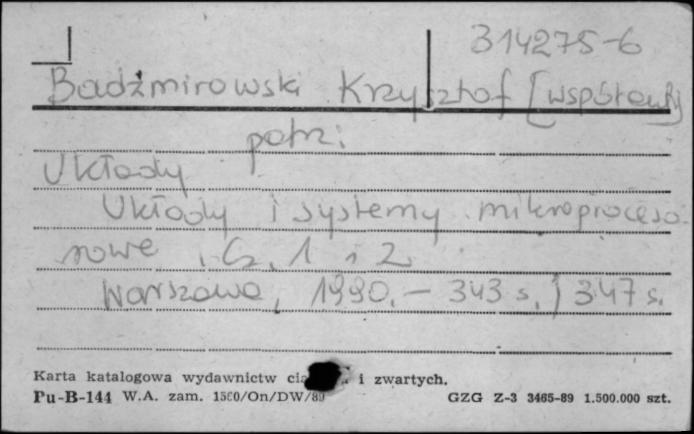 314275-6
Badźmirowski Krzysztof [współaut.]
patrz:
Układy
Układy i systemy mikroproceso-
rowe . Cz. 1 i 2
Warszawa, 1990. - 343 s., 347 s.
Karta katalogowa wydawnictw i zwartych.
Pu-B-144 W.A. zam. 1560/On/DW/89 GZG Z-3 3465-89 1.500.000 szt.